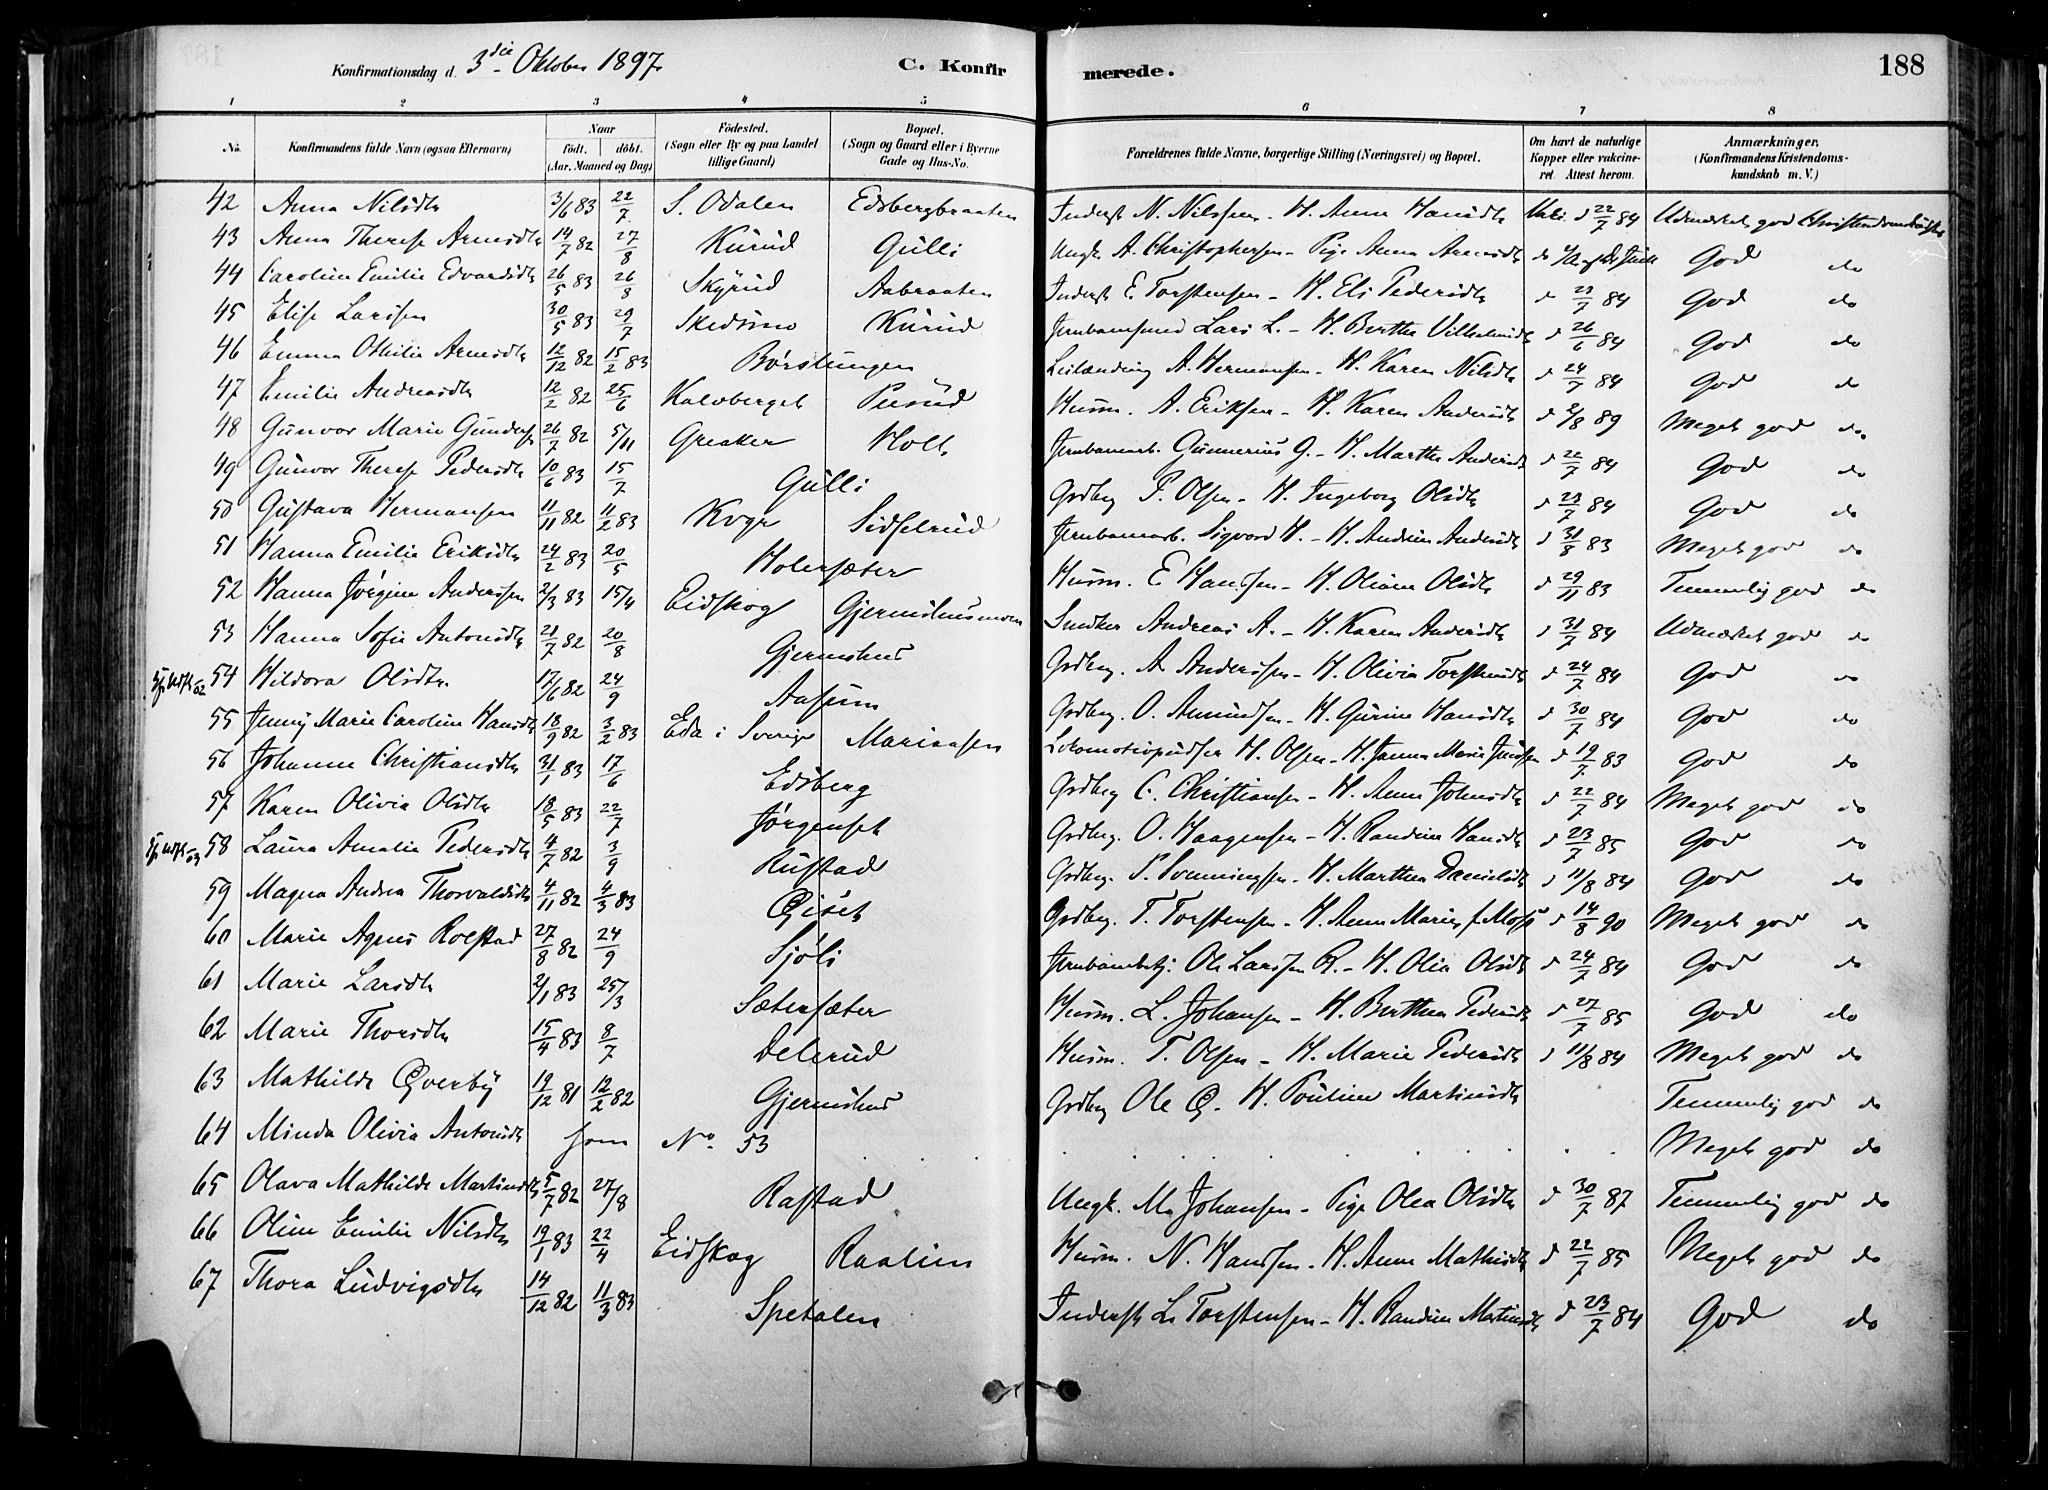 Konfirmationsdag d. 3die Oktober 1897. C. Konfirmerede. 188
1 2 3 4 5 6 7 8
No. Konfirmandens fulde Navn (ogsaa Efternavn) Naar født. døbt. (Aar, Maaned og Dag) Födested. (Sogn eller By og paa Landet tillige Gaard) Bopæl. (Sogn og Gaard eller i Byerne Gade og Hus-No. Forældrenes fulde Navne, borgerlige Stilling (Næringsvei) og Bopæl. Om havt de naturlige Kopper eller vakcineret. Attest herom. Anmærkninger. (Konfirmandens Kristendomskundskab m. V.)
42 Anna Nilsdtr 3/6 83 22/7 S. Odalen Edsbergbraaten Inderst N. Nilssen - H. Anne Hansdtr d 22/7 84 Udmærket god
43 Anna Therese Arnesdtr 14/7 82 27/8 Kurud Gulli Ungk. A. Christophersen - Pige Anna Arnesdtr God do
44 Caroline Emilie Edvardsdtr 26/5 83 26/8 Skyrud Aabraaten Inderst E. Torstensen - H. Eli Pedersdtr d 23/7 84 God do
45 Elise Larssen 30/5 83 29/7 Skedsmo Kurud Lars L. - H. Berthe d 26/6 84 God do
46 Emma Othilie Arnesdtr 12/12 82 15/2 83 Børslungen Leilænding A. Hermansen - H. Karen Nilsdtr d 24/7 84 God do
47 Emilie Andreasdtr 12/2 82 25/6 Kalvberget Pusud Husm. A. Eriksen - H. Karen Andersdtr d 2/8 89 Meget god do
48 Gunvor Marie Gunders 26/7 82 5/11 Greaker Holt Jernbanearb. Gunnerius G. - H. Marthe Andersdtr d 22/7 84 God do
49 Gunvor Therese Pedersdtr 10/6 83 15/7 Gulli Grdbrg P. Olsen - H. Ingeborg Olsdtr d 23/7 84 God do
50 Gustava Hermansen 11/11 82 11/2 83 Kvgr Sidselrud Jernbanearb. Sigvard H. - H. Andrine Andersdtr d 31/8 83 Meget god do
51 Hanna Emilie Eriksdtr 24/2 83 20/5 Holersæter Husm. E Hanssen - H. Oliane Olsdtr d 29/11 83 Temmelig god do
52 Hanna Jørgine Anderssen 2/3 83 15/4 Eidskog Gjermshusmoen Snedker Andreas A. - H. Karen Andersdtr d 31/7 84 Udmærket god do
53 Hanna Sofie Antonsdtr 21/7 82 20/8 Gjermshus Grdbrg. A. Anderssen - H. Olivia Torstensdtr d 24/7 84 God do
54 Hildora Olsdtr. 17/6 82 24/9 Aasum Grdbrg. O. Amundsen - H. Gurine Hansdtr d 30/7 84 God do
55 Jenny Marie Caroline Hansdtr 18/9 82 3/2 83 Eda i Sverige Mariaasen Lokomotivpudser H. Olsen - H. Janna Marie Jenssen d 19/7 83 God do
56 Johanne Christiansdtr 31/1 83 17/6 Edsberg Grdbrg C. Christiansen - H. Anne Johnsdtr d 22/7 84 Meget god do
57 Karen Olivia Olsdtr 18/5 83 22/7 Jørgenset Grdbrg. O. Haagensen - H. Randine Hansdtr d 23/7 85 God do
58 Laura Amalie Pedersdtr 4/7 82 3/9 Rustad Grdbrg. P. Svenningsen - H. Marthea Danielsdtr d 11/8 84 God do
59 Magna Andrea Thorvaldsdtr 4/11 82 4/3 83 Qviset Grdbrg. T. Torstensen - H. Anne Marie f. Moss d 14/8 90 Meget god do
60 Marie Agnes Rolstad 27/8 82 24/9 Sjøli Ole Larssen R. - H. Olia Olsdtr d 24/7 84 God do
61 Marie Larsdtr 2/1 83 25/3 Sætersæter Husm. L. Johansen - H. Berthea Pedersdtr d 27/7 85 God do
62 Marie Thorsdtr 15/4 83 8/7 Delerud Husm. T. Olsen - H. Marie Pedersdtr d 11/8 84 Meget god do
63 Mathilde Qverby 19/12 81 12/2 82 Gjermshus Grdbrg Ole Q. H. Pouline Martinsdtr Temmelig god do
64 Minda Olivia Antonsdtr som No 53 Meget god do
65 Olava Mathilde Martinsdtr 5/7 82 27/8 Rastad Ungk. M. Johansen - Pige Olea Olsdtr d 30/7 87 Temmelig god do
66 Oline Emilie Nilsdtr 19/1 83 22/4 Eidskog Raalien Husm. N. Hanssen - H. Anne Mathisdtr d 22/7 85 Meget god do
67 Thora Ludvigsdtr 14/12 82 11/3 83 Spetalen Inderst L. Torstensen - H. Randine Martinsdtr d 23/7 84 God do